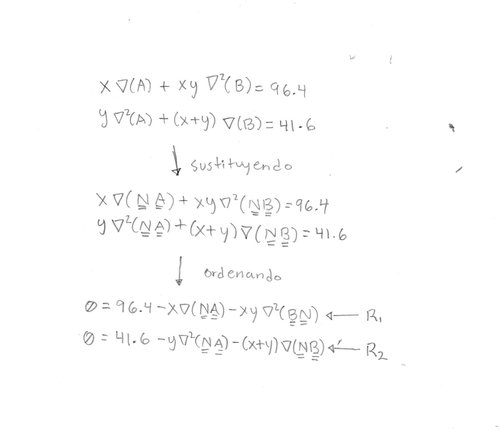 x ∇(A) + xy ∇²(B) = 96.4
y ∇²(A) + (x+y) ∇(B) = 41.6
↓ sustituyendo
x ∇(N̲̲ A̲̲) + xy ∇²(N̲̲ B̲̲) = 96.4
y ∇²(N̲̲ A̲̲) + (x+y) ∇(N̲̲ B̲̲) = 41.6
↓ ordenando
0 = 96.4 - x∇(N̲̲A̲̲) - xy ∇²(B̲̲N̲̲) ← R₁
0 = 41.6 - y∇²(N̲̲A̲̲) - (x+y)∇(N̲̲B̲̲) ← R₂